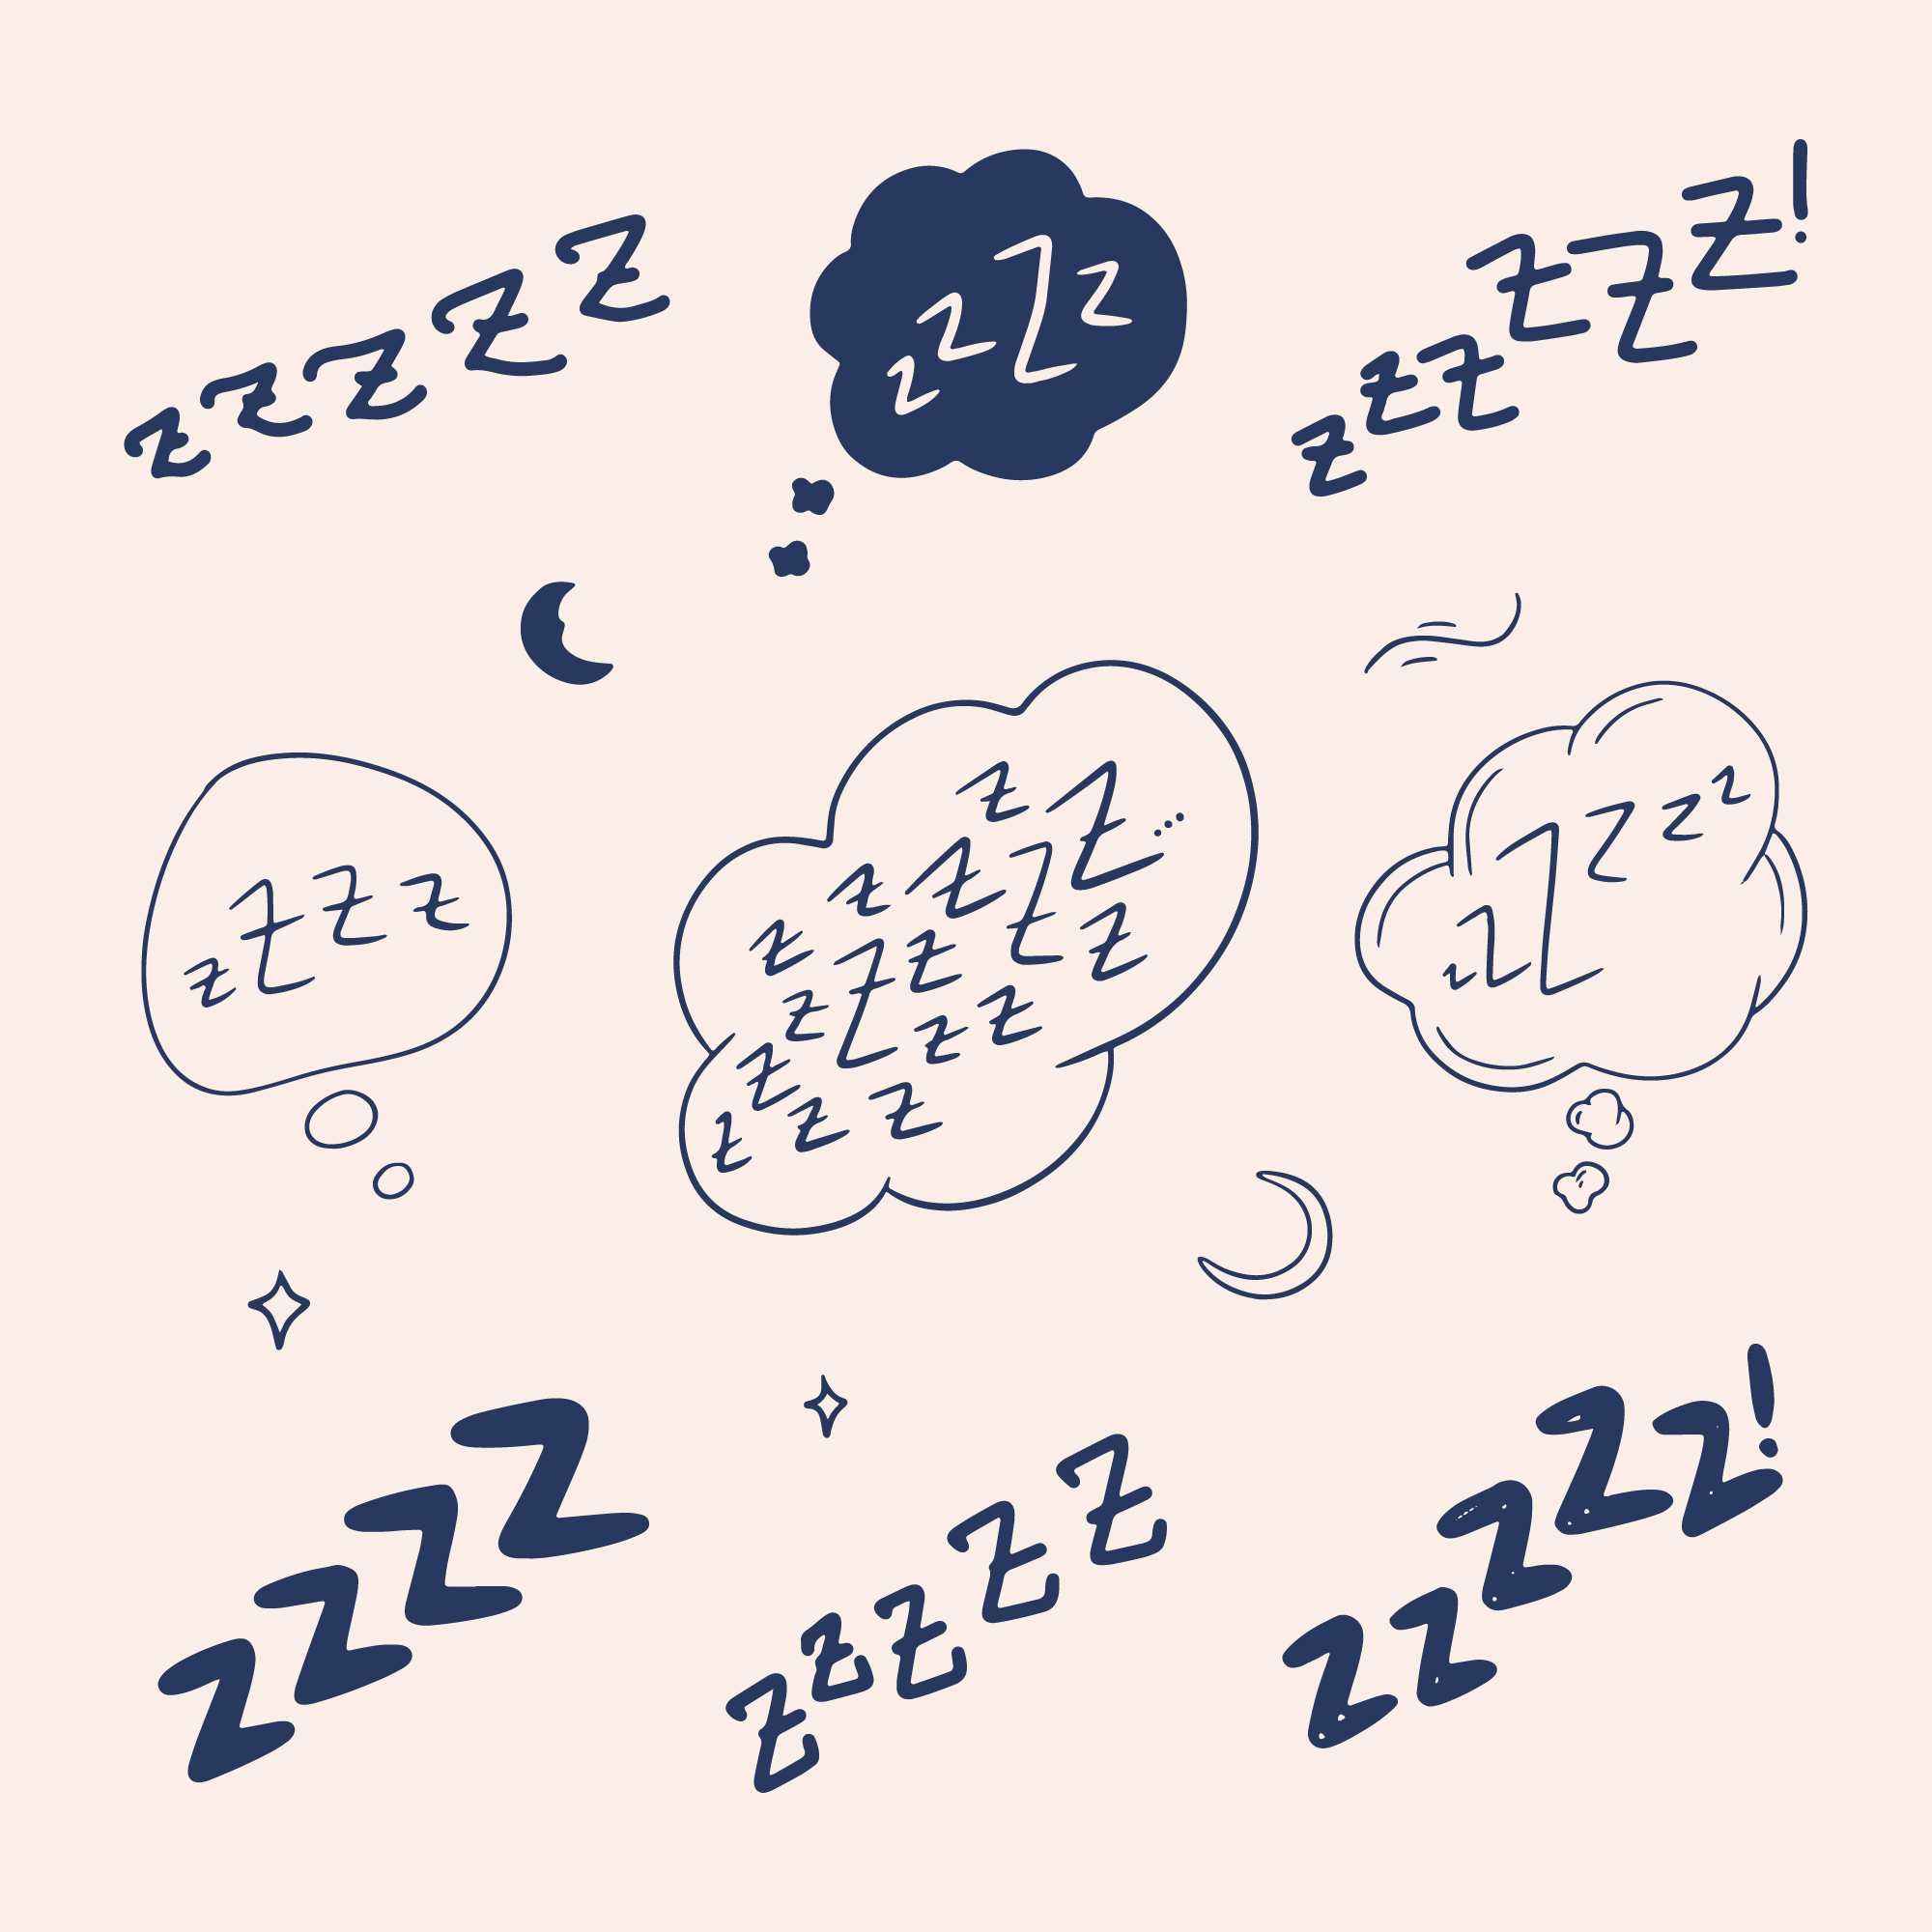 zzzzz
zzZz
zzzzzz!
zZzz
zzzzZ...
zZzZz
zzzzzz
zzZzzz
ZZZZ
zzzzz
ZZZZZ!